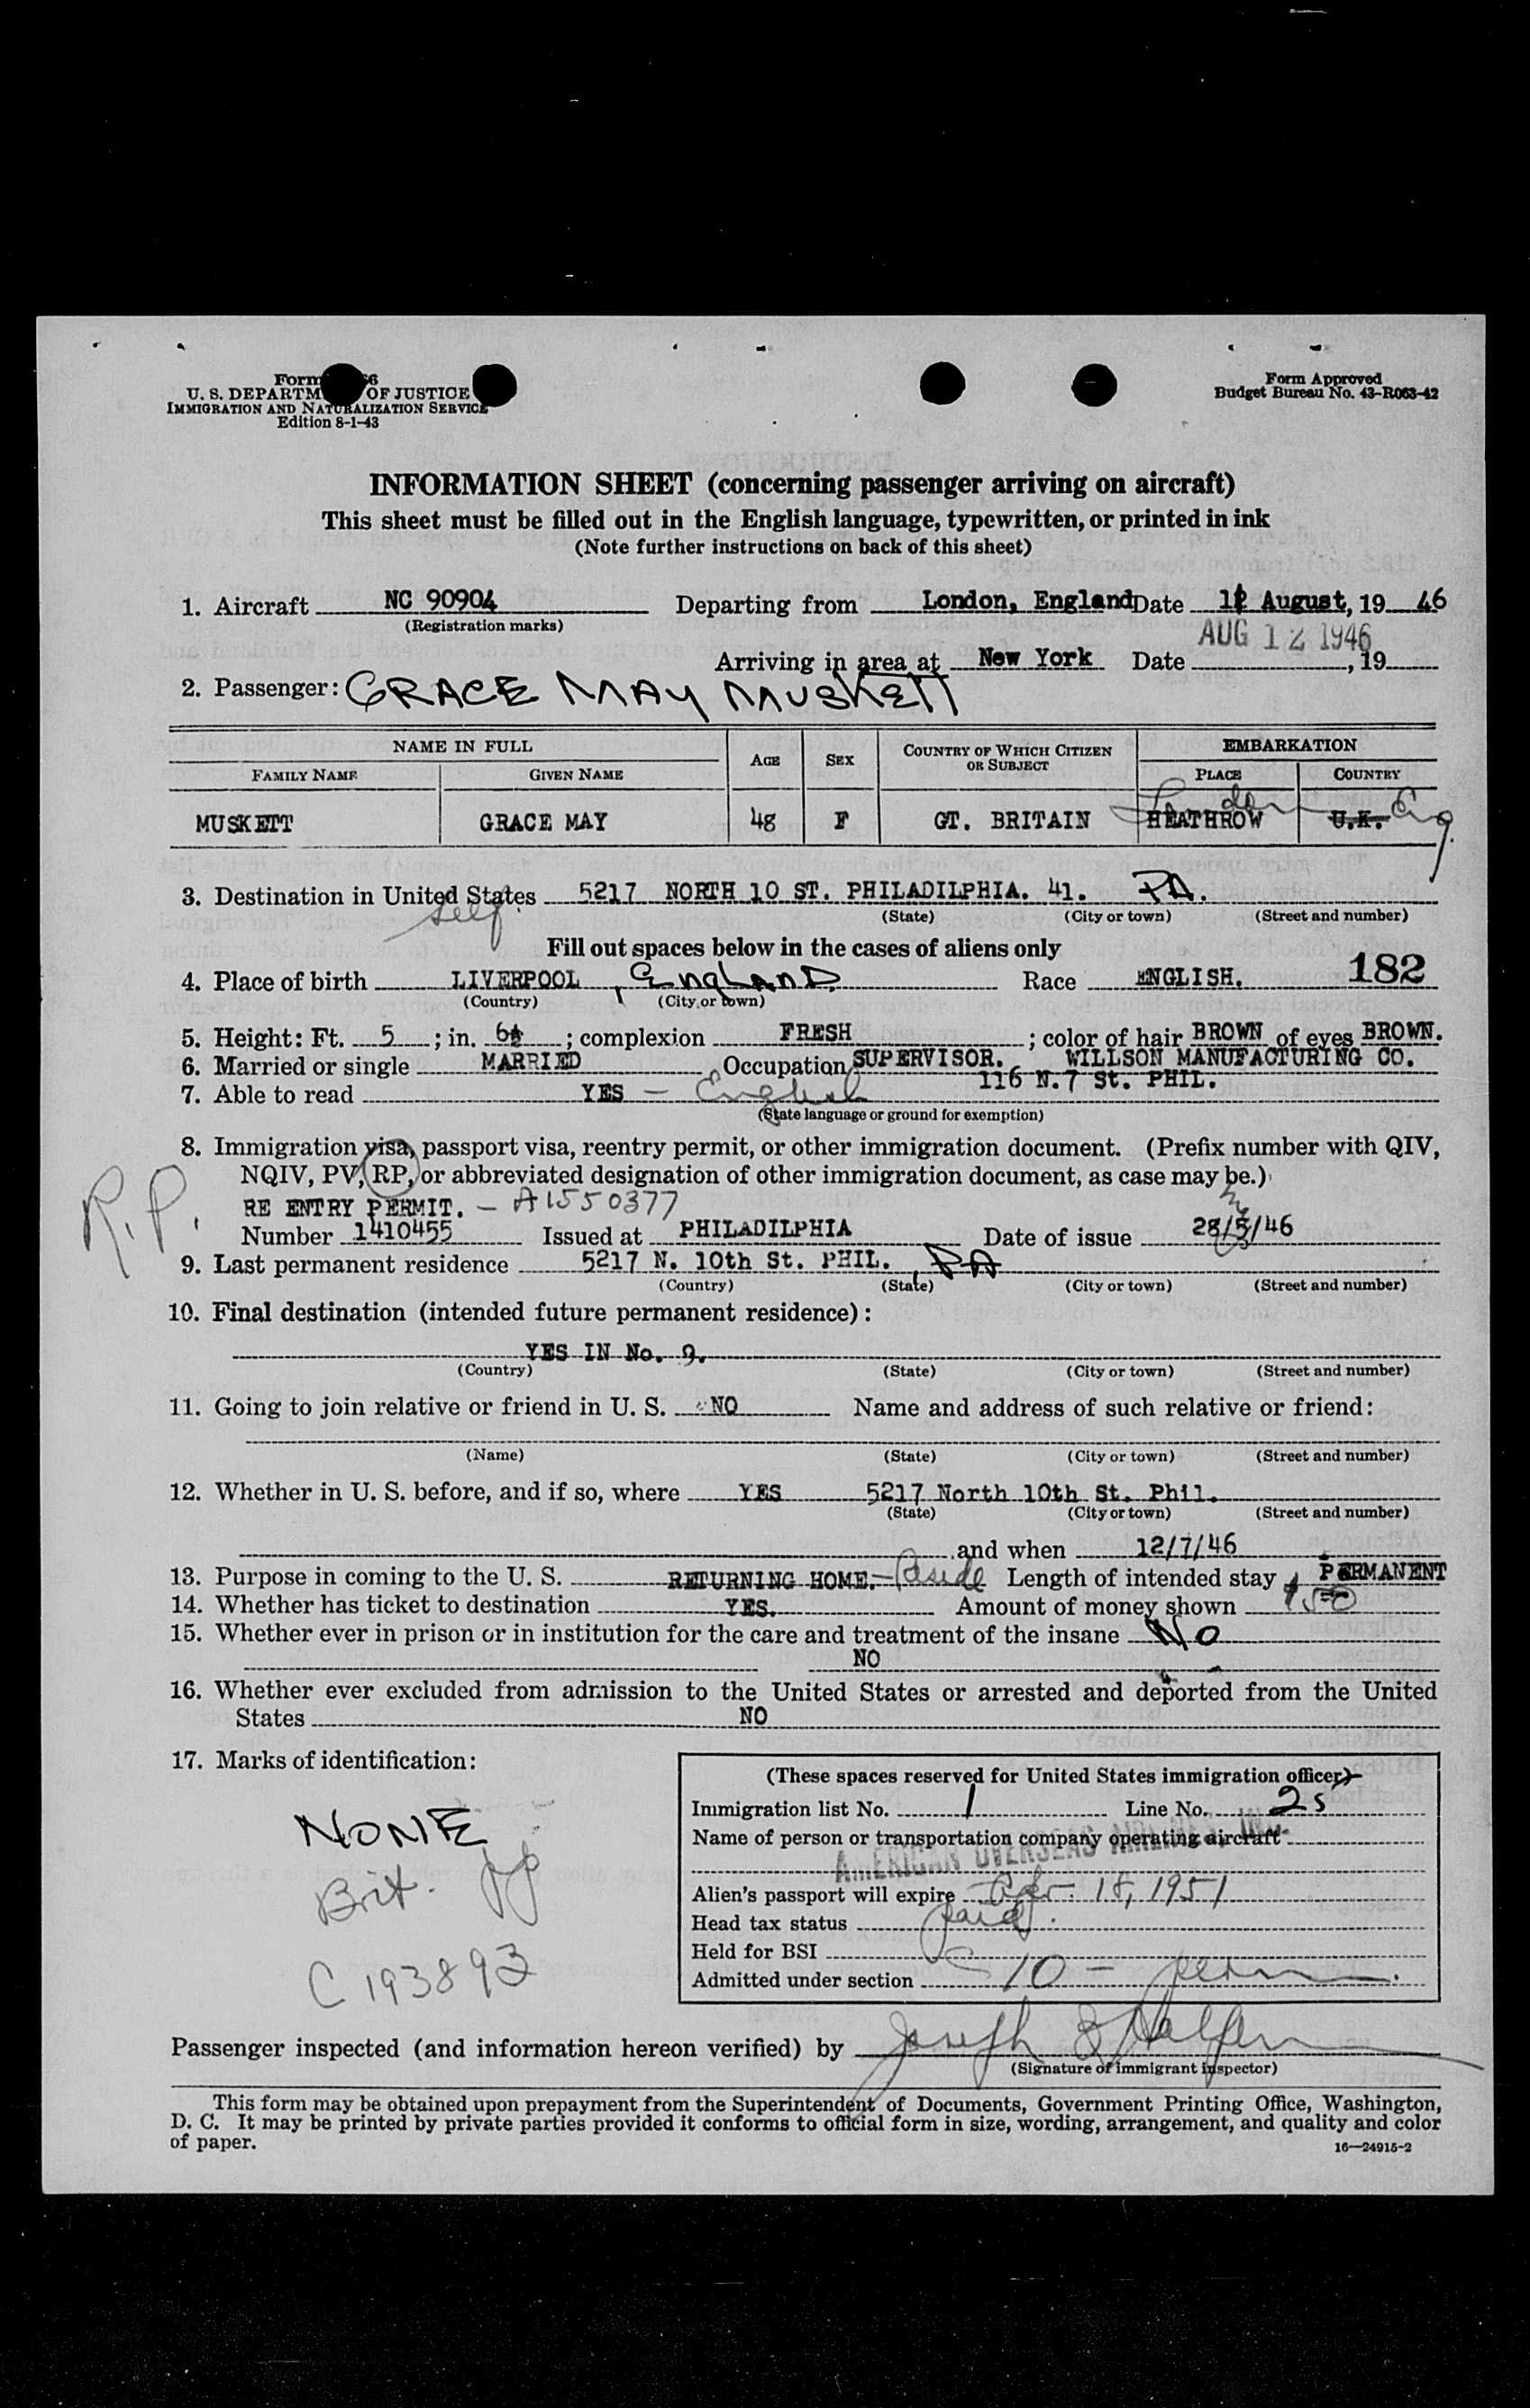 Form 66
U. S. DEPARTM OF JUSTICE
IMMIGRATION AND NATURALIZATION SERVICE
Edition 8-1-43
Form Approved
Budget Bureau No. 43-R063-42
INFORMATION SHEET (concerning passenger arriving on aircraft)
This sheet must be filled out in the English language, typewritten, or printed in ink
(Note further instructions on back of this sheet)
1. Aircraft NC 90904 Departing from London, England Date 12 August, 19 46
(Registration marks)
AUG 12 1946
Arriving in area at New York Date , 19
2. Passenger: GRACE MAY MUSKETT
NAME IN FULL AGE SEX COUNTRY OF WHICH CITIZEN OR SUBJECT EMBARKATION
FAMILY NAME GIVEN NAME PLACE COUNTRY
London Eng.
MUSKETT GRACE MAY 48 F GT. BRITAIN HEATHROW U.K.
3. Destination in United States 5217 NORTH 10 ST. PHILADILPHIA. 41. PA.
(State) (City or town) (Street and number)
self
Fill out spaces below in the cases of aliens only
4. Place of birth LIVERPOOL, ENGLAND. Race ENGLISH. 182
(Country) (City or town)
5. Height: Ft. 5 ; in. 6½ ; complexion FRESH ; color of hair BROWN of eyes BROWN.
6. Married or single MARRIED Occupation SUPERVISOR. WILLSON MANUFACTURING CO.
116 N.7 St. PHIL.
7. Able to read YES — English
(State language or ground for exemption)
8. Immigration visa, passport visa, reentry permit, or other immigration document. (Prefix number with QIV,
NQIV, PV, RP, or abbreviated designation of other immigration document, as case may be.)
R.P.
RE ENTRY PERMIT. - A1550377
Number 1410455 Issued at PHILADILPHIA Date of issue 28/3/46
9. Last permanent residence 5217 N. 10th St. PHIL. PA
(Country) (State) (City or town) (Street and number)
10. Final destination (intended future permanent residence):
YES IN No. 9.
(Country) (State) (City or town) (Street and number)
11. Going to join relative or friend in U. S. NO Name and address of such relative or friend:
(Name) (State) (City or town) (Street and number)
12. Whether in U. S. before, and if so, where YES 5217 North 10th St. Phil.
(State) (City or town) (Street and number)
and when 12/7/46
13. Purpose in coming to the U. S. RETURNING HOME. - Reside Length of intended stay PERMANENT
14. Whether has ticket to destination YES. Amount of money shown $50
15. Whether ever in prison or in institution for the care and treatment of the insane No
NO
16. Whether ever excluded from admission to the United States or arrested and deported from the United
States NO
17. Marks of identification:
NONE
Brit. pp
C 193893
(These spaces reserved for United States immigration officer)
Immigration list No. 1 Line No. 25
Name of person or transportation company operating aircraft
AMERICAN OVERSEAS AIRLINES, INC.
Alien's passport will expire Apr. 18, 1951
Head tax status paid.
Held for BSI
Admitted under section 10 - perm.
Passenger inspected (and information hereon verified) by Joseph
(Signature of immigrant inspector)
This form may be obtained upon prepayment from the Superintendent of Documents, Government Printing Office, Washington,
D. C. It may be printed by private parties provided it conforms to official form in size, wording, arrangement, and quality and color
of paper.
16—24915-2